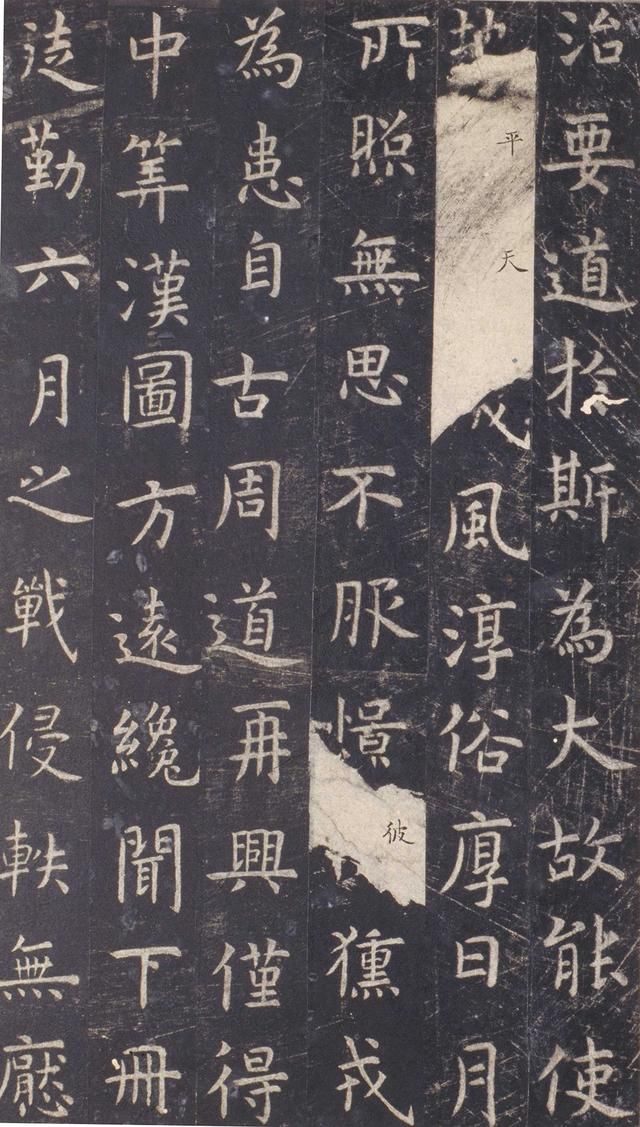 治要道於斯為大故能使
地平天成風俗淳厚日月
所照無思不服憬彼獯戎
為患自古周道再興僅得
中筭漢圖方遠纔聞下冊
徒勤六月之戰侵軼無厭